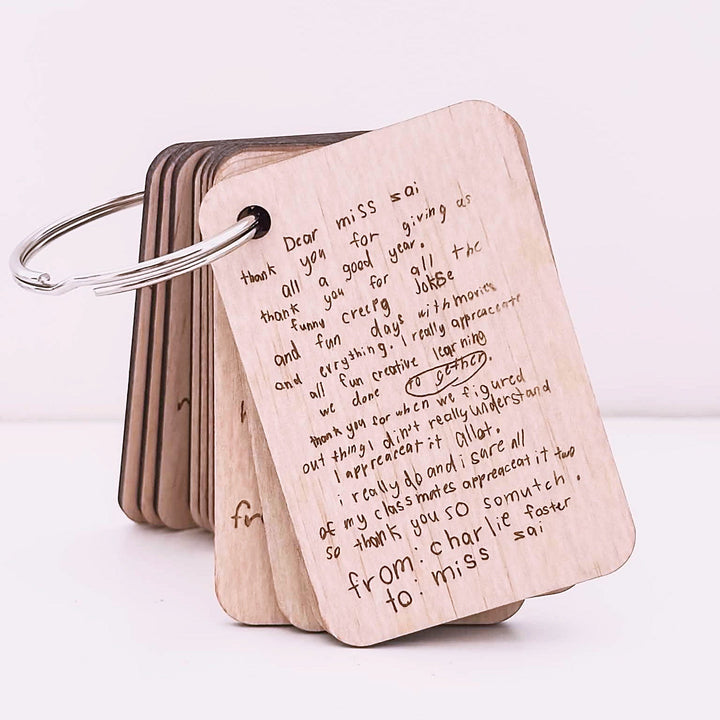 Dear miss sai
thank you for giving us
all a good year.
thank you for all the
funny creepy jokse
and fun days with movies
and evrything. I really appreaceate
all fun creotive learning
we done to gether.
thank you for when we figured
out thing I din't really understand
I appreaceat it allot.
i really do and i sure all
of my classmates appreaceat it two
so thank you so somutch.
from: charlie foster
to: miss sai
fr